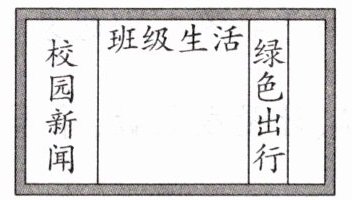 校园新闻
班级生活
绿色出行